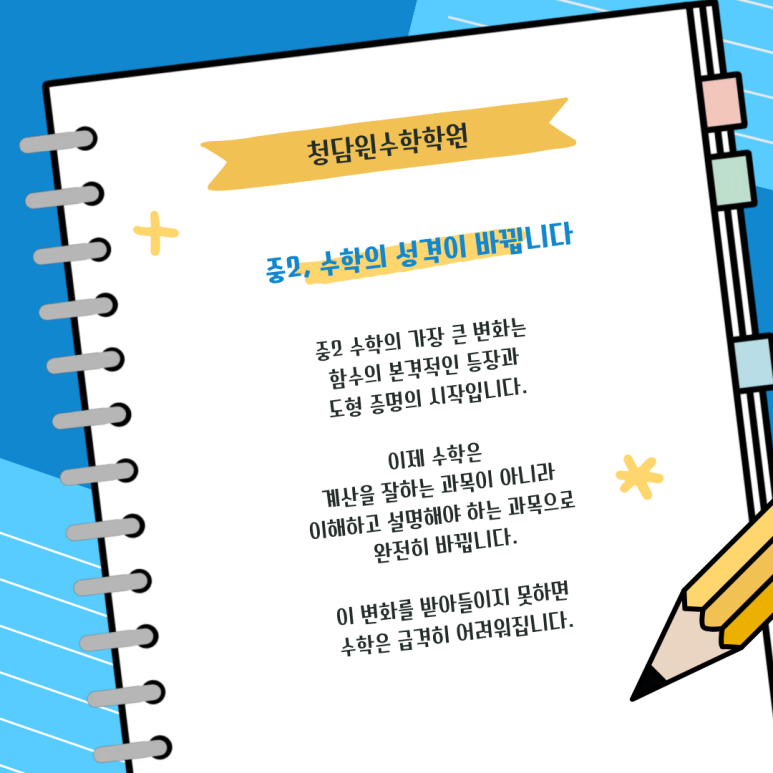 청담원수학학원
중2, 수학의 성격이 바뀝니다
중2 수학의 가장 큰 변화는
함수의 본격적인 등장과
도형 증명의 시작입니다.
이제 수학은
계산을 잘하는 과목이 아니라
이해하고 설명해야 하는 과목으로
완전히 바뀝니다.
이 변화를 받아들이지 못하면
수학은 급격히 어려워집니다.